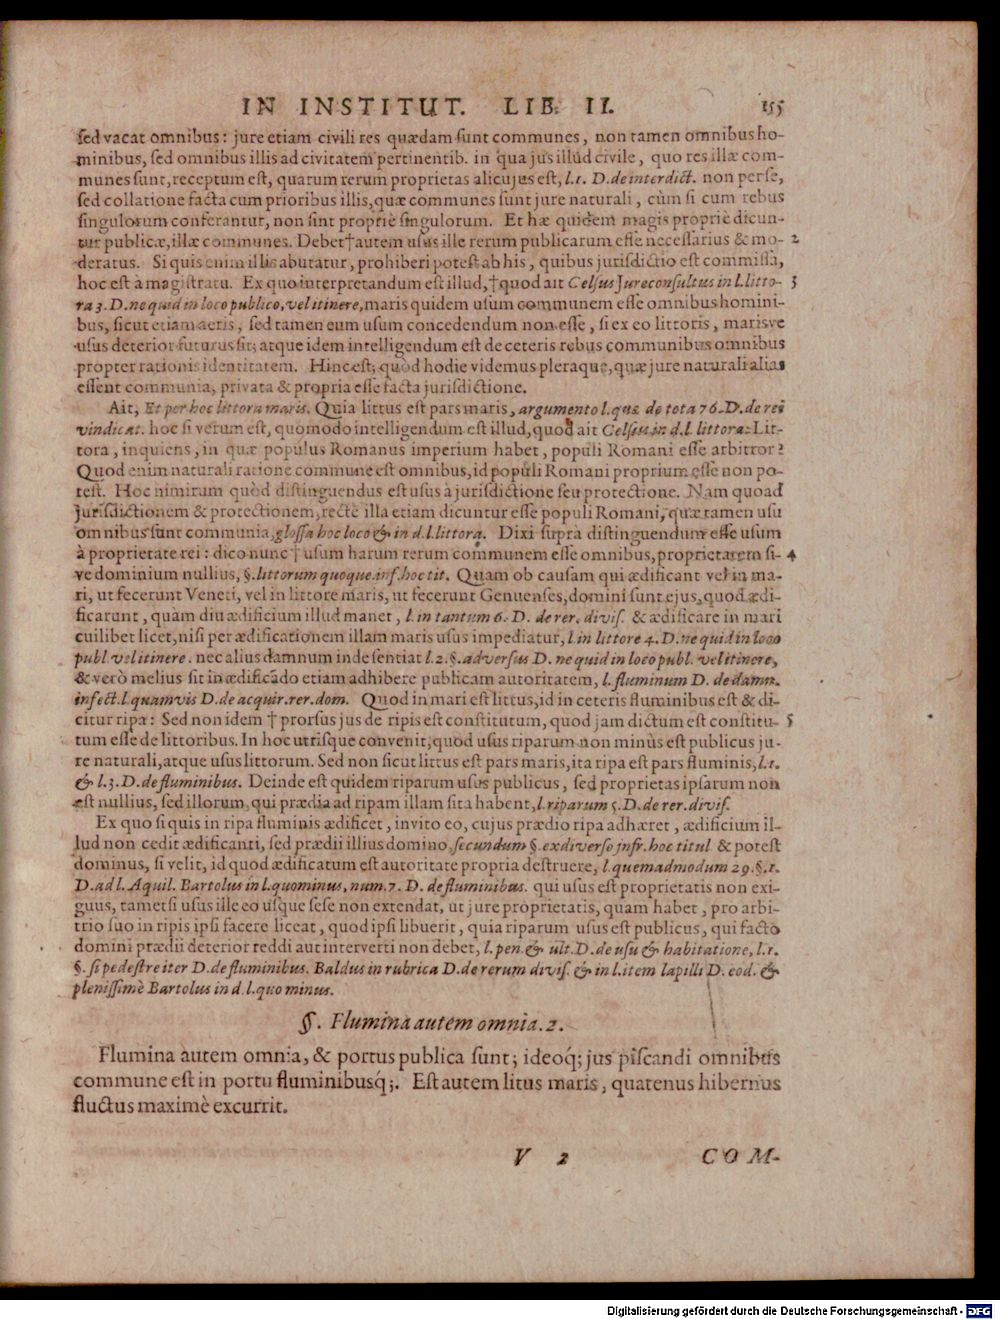 IN INSTITUT. LIB. II. 155
ſed vacat omnibus: jure etiam civili res quædam ſunt communes, non tamen omnibus ho-
minibus, ſed omnibus illis ad civitatem pertinentib. in qua jus illud civile, quo res illæ com-
munes ſunt, receptum eſt, quarum rerum proprietas alicujus eſt, l.1. D. de interdict. non per ſe,
ſed collatione facta cum prioribus illis, quæ communes ſunt jure naturali, cùm ſi cum rebus
ſingulorum conferantur, non ſint propriè ſingulorum. Et hæ quidem magis propriè dicun-
tur publicæ, illæ communes. Debet † autem uſus ille rerum publicarum eſſe neceſſarius & mo- 2
deratus. Si quis enim illis abutatur, prohiberi poteſt ab his, quibus jurisdictio eſt commiſſa,
hoc eſt à magiſtratu. Ex quo interpretandum eſt illud, † quod ait Celſus Jureconſultus in l. litto- 3
ra 3. D. ne quid in loco publico, vel itinere, maris quidem uſum communem eſſe omnibus homini-
bus, ſicut etiam aeris, ſed tamen eum uſum concedendum non eſſe, ſi ex eo littoris, marisve
uſus deterior futurus ſit; atque idem intelligendum eſt de ceteris rebus communibus omnibus
propter rationis identitatem. Hinc eſt, quòd hodie videmus pleraque, quæ jure naturali alias
eſſent communia, privata & propria eſſe facta jurisdictione.
Ait, Et per hoc littora maris. Quia littus eſt pars maris, argumento l. quæ de tota 76. D. de rei
vindicat. hoc ſi verum eſt, quomodo intelligendum eſt illud, quod ait Celſus in d. l. littora: Lit-
tora, inquiens, in quæ populus Romanus imperium habet, populi Romani eſſe arbitror?
Quod enim naturali ratione commune eſt omnibus, id populi Romani proprium eſſe non po-
teſt. Hoc nimirum quòd diſtinguendus eſt uſus à jurisdictione ſeu protectione. Nam quoad
jurisdictionem & protectionem, rectè illa etiam dicuntur eſſe populi Romani, quæ tamen uſu
omnibus ſunt communia, gloſſa hoc loco & in d. l. littora. Dixi ſuprà diſtinguendum eſſe uſum
à proprietate rei: dico nunc † uſum harum rerum communem eſſe omnibus, proprietatem ſi- 4
ve dominium nullius, §. littorum quoque. inf. hoc tit. Quam ob cauſam qui ædificant vel in ma-
ri, ut fecerunt Veneti, vel in littore maris, ut fecerunt Genuenſes, domini ſunt ejus, quod ædi-
ficarunt, quàm diu ædificium illud manet, l. in tantum 6. D. de rer. diviſ. & ædificare in mari
cuilibet licet, niſi per ædificationem illam maris uſus impediatur, l. in littore 4. D. ne quid in loco
publ. vel itinere. nec alius damnum inde ſentiat l. 2. §. adverſus D. ne quid in loco publ. vel itinere,
& verò melius ſit in ædificādo etiam adhibere publicam autoritatem, l. fluminum D. de damn.
infect. l. quamvis D. de acquir. rer. dom. Quod in mari eſt littus, id in ceteris fluminibus eſt & di-
citur ripa: Sed non idem † prorſus jus de ripis eſt conſtitutum, quod jam dictum eſt conſtitu- 5
tum eſſe de littoribus. In hoc utriſque convenit, quod uſus riparum non minùs eſt publicus ju-
re naturali, atque uſus littorum. Sed non ſicut littus eſt pars maris, ita ripa eſt pars fluminis, l.1.
& l. 3. D. de fluminibus. Deinde eſt quidem riparum uſus publicus, ſed proprietas ipſarum non
eſt nullius, ſed illorum, qui prædia ad ripam illam ſita habent, l. riparum 5. D. de rer. diviſ.
Ex quo ſi quis in ripa fluminis ædificet, invito eo, cujus prædio ripa adhæret, ædificium il-
lud non cedit ædificanti, ſed prædii illius domino, ſecundum §. ex diverſo infr. hoc titul & poteſt
dominus, ſi velit, id quod ædificatum eſt autoritate propria deſtruere, l. quemadmodum 29. §. 1.
D. ad l. Aquil. Bartolus in l. quominus, num. 7. D. de fluminibus. qui uſus eſt proprietatis non exi-
guus, tametſi uſus ille eo uſque ſeſe non extendat, ut jure proprietatis, quam habet, pro arbi-
trio ſuo in ripis ipſi facere liceat, quod ipſi libuerit, quia riparum uſus eſt publicus, qui facto
domini prædii deterior reddi aut interverti non debet, l. pen. & ult. D. de uſu & habitatione, l. 1.
§. ſi pedeſtre iter D. de fluminibus. Baldus in rubrica D. de rerum diviſ. & in l. item lapilli D. eod. &
pleniſſimè Bartolus in d l. quo minus.
§. Flumina autem omnia. 2.
Flumina autem omnia, & portus publica ſunt; ideoq́; jus piſcandi omnibus
commune eſt in portu fluminibusq́;. Eſt autem litus maris, quatenus hibernus
fluctus maximè excurrit.
V 2 COM-
Digitalisierung gefördert durch die Deutsche Forschungsgemeinschaft - DFG